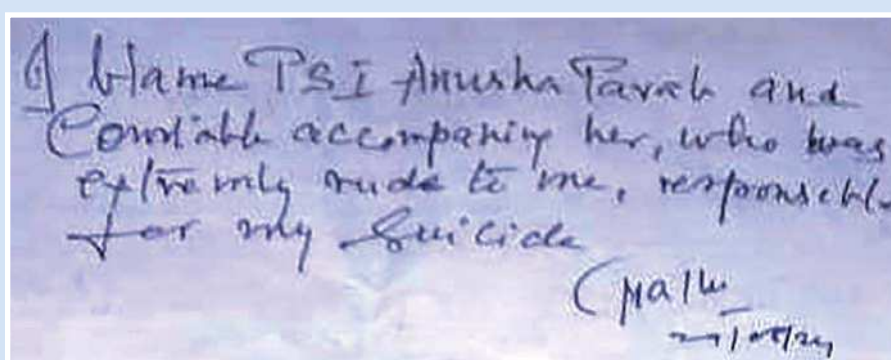 I blame PSI Anusha Parab and
Constable accompaning her, who was
extremly rude to me, responsible
for my Suicide